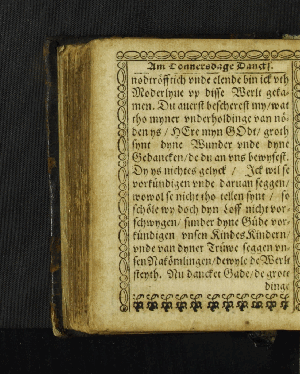 Am Donnersdage Danckf.
nodtröfftich vnde elende bin ick vth
Moderlyue vp disse Werlt geka-
men. Du auerst bescherest my/ wat
tho myner vnderholdinge van nö-
den ys/ HEre myn GOdt/ groth
synt dyne Wunder vnde dyne
Gedancken/ de du an vns bewysest.
Dy ys nichtes gelyck/ Ick wil se
vorkündigen vnde daruan seggen/
wowol se nicht tho tellen synt/ so
schöle wy doch dyn Loff nicht vor-
schwygen/ sunder dyne Güde vor-
kündigen vnsen Kindes Kindern/
vnde van dyner Trüwe seggen vn-
sen Nakömlingen/ dewyle de Werlt
steyth. Nu dancket Gade/ de grote
dinge